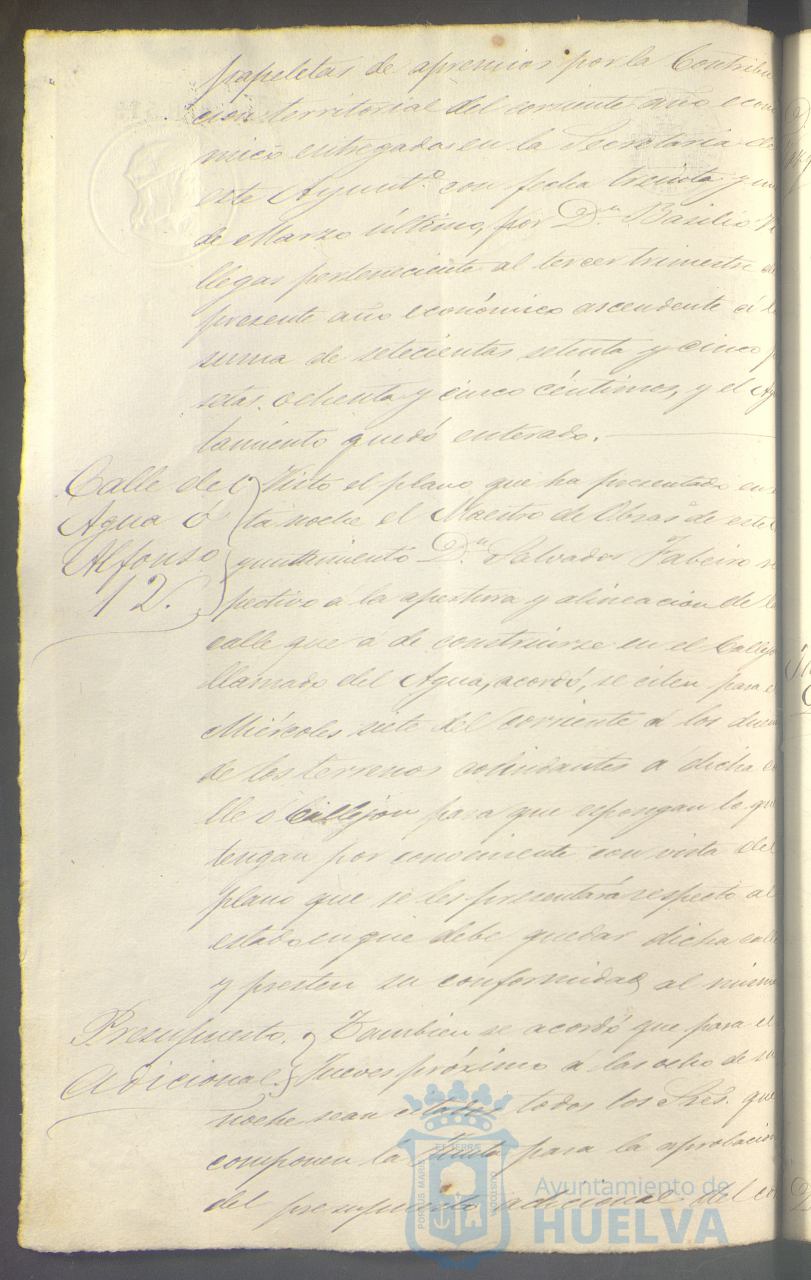 papeletas de apremios por la Contribu
cion territorial del corriente año econo
mico entregadas en la Secretaria de
este Ayunt.º con fecha treinta y un
de Marzo último, por D.n Basilio Vi
llegas perteneciente al tercer trimestre de
presente año económico ascendente á l
suma de setecientas setenta y cinco p
setas ochenta y cinco céntimos, y el Ayu
tamiento quedó enterado.
Calle del
Agua ó
Alfonso
12.
Visto el plano que ha presentado en es
ta noche el Maestro de Obras de este A
yuntamiento D.n Salvador Fabeiro res
pectivo a la apertura y alineacion de la
calle que á de construirse en el Callejo
llamado del Agua, acordó, se citen para e
Miércoles siete del corriente á los dueñ
de los terrenos colindantes a dicha ca
lle ó Callejon para que espongan lo que
tengan por conveniente con vista del
plano que se les presentará respecto al
estado en que debe quedar dicha calle
y presten su conformidad al mismo
Presupuesto
Adicional.
Tambien se acordó que para el
Jueves próximo á las ocho de su
noche sean citados todos los Sres. que
componen la Junta para la aprobacion
del presupuesto adicional del co
PORTUS MARIS
ET TERRE
CUSTODIA
Ayuntamiento de
HUELVA